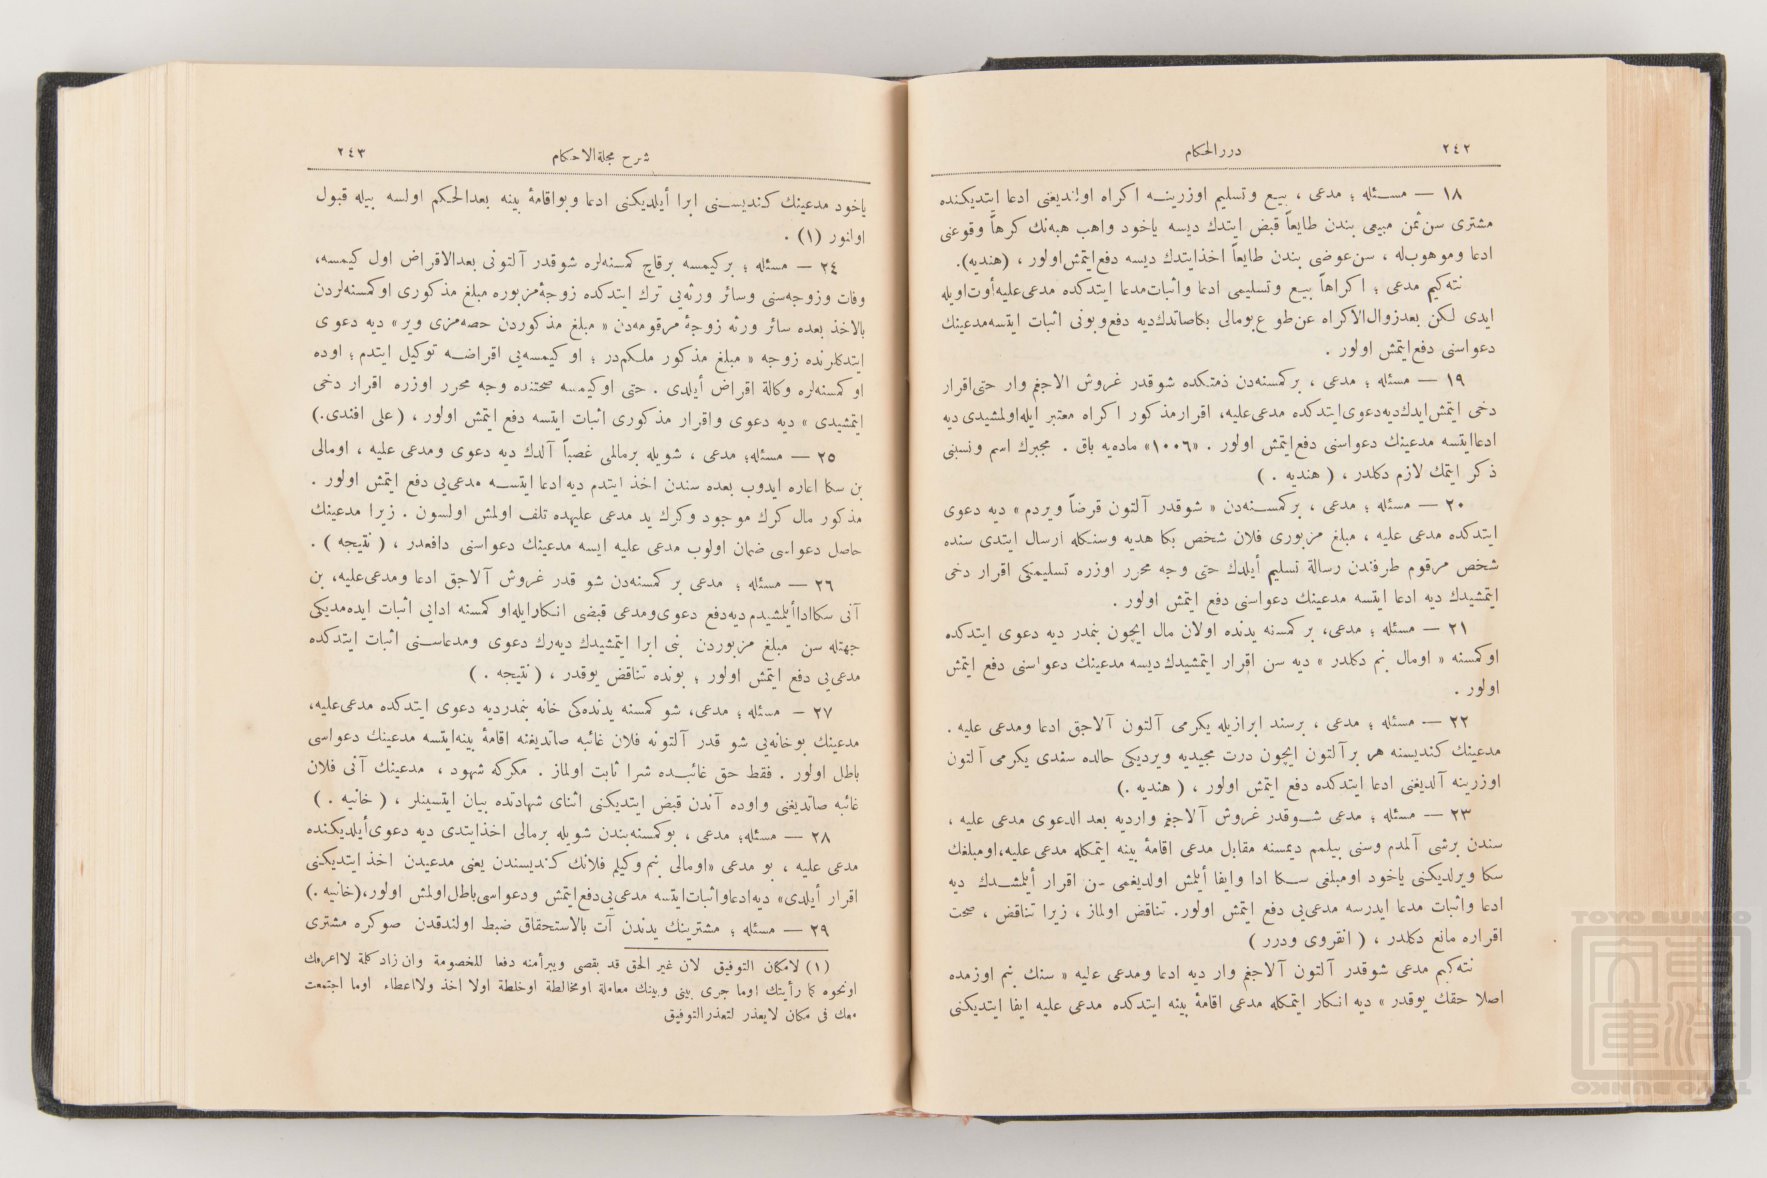 ٢٤٢
دررالحكام
١٨ — مسئله ؛ مدعى ، بيع وتسليم اوزرينه اكراه اولنديغنى ادعا ايتديكنده
مشترى سن ثمن مبيعى بندن طايعاً قبض ايتدك ديسه ياخود واهب هبه‌نك كرهاً وقوعنى
ادعا وموهوب‌له ، سن‌عوضى بندن طايعاً اخذايتدك ديسه دفع‌ايتمش‌اولور ، (هنديه).
نته‌كيم مدعى ؛ اكراهاً بيع وتسليمى ادعا واثبات‌مدعا ايتدكده مدعى‌عليه‌أوت‌اويله
ايدى لكن بعدزوال‌الاكراه عن‌طوع‌بومالى بكاصاتدك‌ديه دفع‌وبونى اثبات ايتسه‌مدعينك
دعواسنى دفع‌ايتمش اولور .
١٩ — مسئله ؛ مدعى ، بركمسنه‌دن ذمتكده شوقدر غروش الاجغم وار حتى‌اقرار
دخى ايتمش‌ايدك‌ديه‌دعوى‌ايتدكده مدعى‌عليه، اقرارمذكور اكراه معتبر ايله‌اولمشيدى ديه
ادعاايتسه مدعينك دعواسنى دفع‌ايتمش اولور . «١٠٠٦» ماده‌يه باق . مجبرك اسم ونسبنى
ذكر ايتمك لازم دكلدر ، ( هنديه . )
٢٠ — مسئله ؛ مدعى ، بركمسنه‌دن « شوقدر آلتون قرضاً ويردم » ديه دعوى
ايتدكده مدعى عليه ، مبلغ مزبورى فلان شخص بكا هديه وسنكله ارسال ايتدى سنده
شخص مرقوم طرفندن رسالة تسليم أيلدك حتى وجه محرر اوزره تسليمكى اقرار دخى
ايتمشيدك ديه ادعا ايتسه مدعينك دعواسنى دفع ايتمش اولور .
٢١ — مسئله ؛ مدعى، بركمسنه يدنده اولان مال ايچون بنمدر ديه دعوى ايتدكده
اوكمسنه « اومال بنم دكلدر » ديه سن اقرار ايتمشيدك‌ديسه مدعينك دعواسنى دفع ايتمش
اولور .
٢٢ — مسئله ؛ مدعى ، برسند ابرازيله يكرمى آلتون آلاجق ادعا ومدعى عليه .
مدعينك كنديسنه هر برآلتون ايچون درت مجيديه ويرديكى حالده سندى يكرمى آلتون
اوزرينه آلديغنى ادعا ايتدكده دفع ايتمش اولور ، ( هنديه .)
٢٣ — مسئله ؛ مدعى شوقدر غروش آلاجغم وارديه بعد الدعوى مدعى عليه ،
سندن برشى آلمدم وسنى بيلمم ديمسنه مقابل مدعى اقامۀ بينه ايتمكله مدعى‌عليه،اومبلغك
سكا ويرلديكنى ياخود اومبلغى سكا ادا وايفا أيلمش اولديغمى سن اقرار أيلمشدك ديه
ادعا واثبات مدعا ايدرسه مدعى‌يى دفع ايتمش اولور. تناقض اولماز ، زيرا تناقض ، صحت
اقراره مانع دكلدر ، ( انقروى ودرر )
نته‌كيم مدعى شوقدر آلتون آلاجغم وار ديه ادعا ومدعى عليه « سنك بنم اوزمده
اصلا حقك يوقدر » ديه انكار ايتمكله مدعى اقامۀ بينه ايتدكده مدعى عليه ايفا ايتديكنى
شرح مجلةالاحكام
٢٤٣
ياخود مدعينك كنديسنى ابرا أيلديكنى ادعا وبواقامۀ بينه بعدالحكم اولسه بيله قبول
اولنور (١) .
٢٤ — مسئله ؛ بركيمسه برقاچ كمسنه‌لره شوقدر آلتونى بعدالاقراض اول كيمسه،
وفات وزوجه‌سنى وسائر ورثه‌يى ترك ايتدكده زوجۀمزبوره مبلغ مذكورى اوكمسنه‌لردن
بالاخذ بعده سائر ورثه زوجۀ مرقومه‌دن « مبلغ مذكوردن حصه‌مزى وير» ديه دعوى
ايتدكلرنده زوجه « مبلغ مذكور ملكم‌در ؛ او كيمسه‌يى اقراضه توكيل ايتدم ؛ اوده
او كمسنه‌لره وكالة اقراض أيلدى . حتى اوكيمسه صحتنده وجه محرر اوزره اقرار دخى
ايتمشيدى » ديه دعوى واقرار مذكورى اثبات ايتسه دفع ايتمش اولور ، ( على افندى.)
٢٥ — مسئله؛ مدعى ، شويله برمالمى غصباً آلدك ديه دعوى ومدعى عليه ، اومالى
بن سكا اعاره ايدوب بعده سندن اخذ ايتدم ديه ادعا ايتسه مدعى‌يى دفع ايتمش اولور .
مذكور مال كرك موجود وكرك يد مدعى عليهده تلف اولمش اولسون . زيرا مدعينك
حاصل دعواسى ضمان اولوب مدعى عليه ايسه مدعينك دعواسنى دافعدر ، ( نتيجه ) .
٢٦ — مسئله ؛ مدعى بر كمسنه‌دن شو قدر غروش آلاجق ادعا ومدعى‌عليه، بن
آنى سكااداأيلمشيدم ديه‌دفع دعوى‌ومدعى قبضى انكارايله‌او كمسنه ادايى اثبات ايده‌مديكى
جهتله سن مبلغ مزبوردن بنى ابرا ايتمشيدك ديه‌رك دعوى ومدعاسنى اثبات ايتدكده
مدعى‌يى دفع ايتمش اولور ؛ بونده تناقض يوقدر ، ( نتيجه . )
٢٧ — مسئله ؛ مدعى، شو كمسنه يدنده‌كى خانه بنمدرديه دعوى ايتدكده مدعى‌عليه،
مدعينك بوخانه‌يى شو قدر آلتونه فلان غائبه صاتديغنه اقامۀ بينه‌ايتسه مدعينك دعواسى
باطل اولور . فقط حق غائبده شرا ثابت اولماز . مكركه شهود ، مدعينك آنى فلان
غائبه صاتديغنى واوده آندن قبض ايتديكنى اثناى شهادتده بيان ايتسينلر ، ( خانيه . )
٢٨ — مسئله؛ مدعى ، بوكمسنه‌بندن شويله برمالى اخذايتدى ديه دعوى‌أيلديكنده
مدعى عليه ، بو مدعى «اومالى بنم وكيلم فلانك كنديسندن يعنى مدعيدن اخذ ايتديكنى
اقرار أيلدى» ديه‌ادعاواثبات‌ايتسه مدعى‌يى‌دفع‌ايتمش ودعواسى‌باطل‌اولمش اولور،(خانيه .)
٢٩ — مسئله ؛ مشترينك يدندن آت بالاستحقاق ضبط اولندقدن صوكره مشترى
(١) لامكان التوفيق لان غير الحق قد يقضى ويبرأمنه دفعا للخصومة وان زادكلمة لااعرفك
اونحوه كما رأيتك اوما جرى بينى وبينك معاملة اومخالطة اوخلطة اولا اخذ ولااعطاء اوما اجتمعت
معك فى مكان لايعذر لتعذرالتوفيق
TOYO BUNKO
TOYO BUNKO